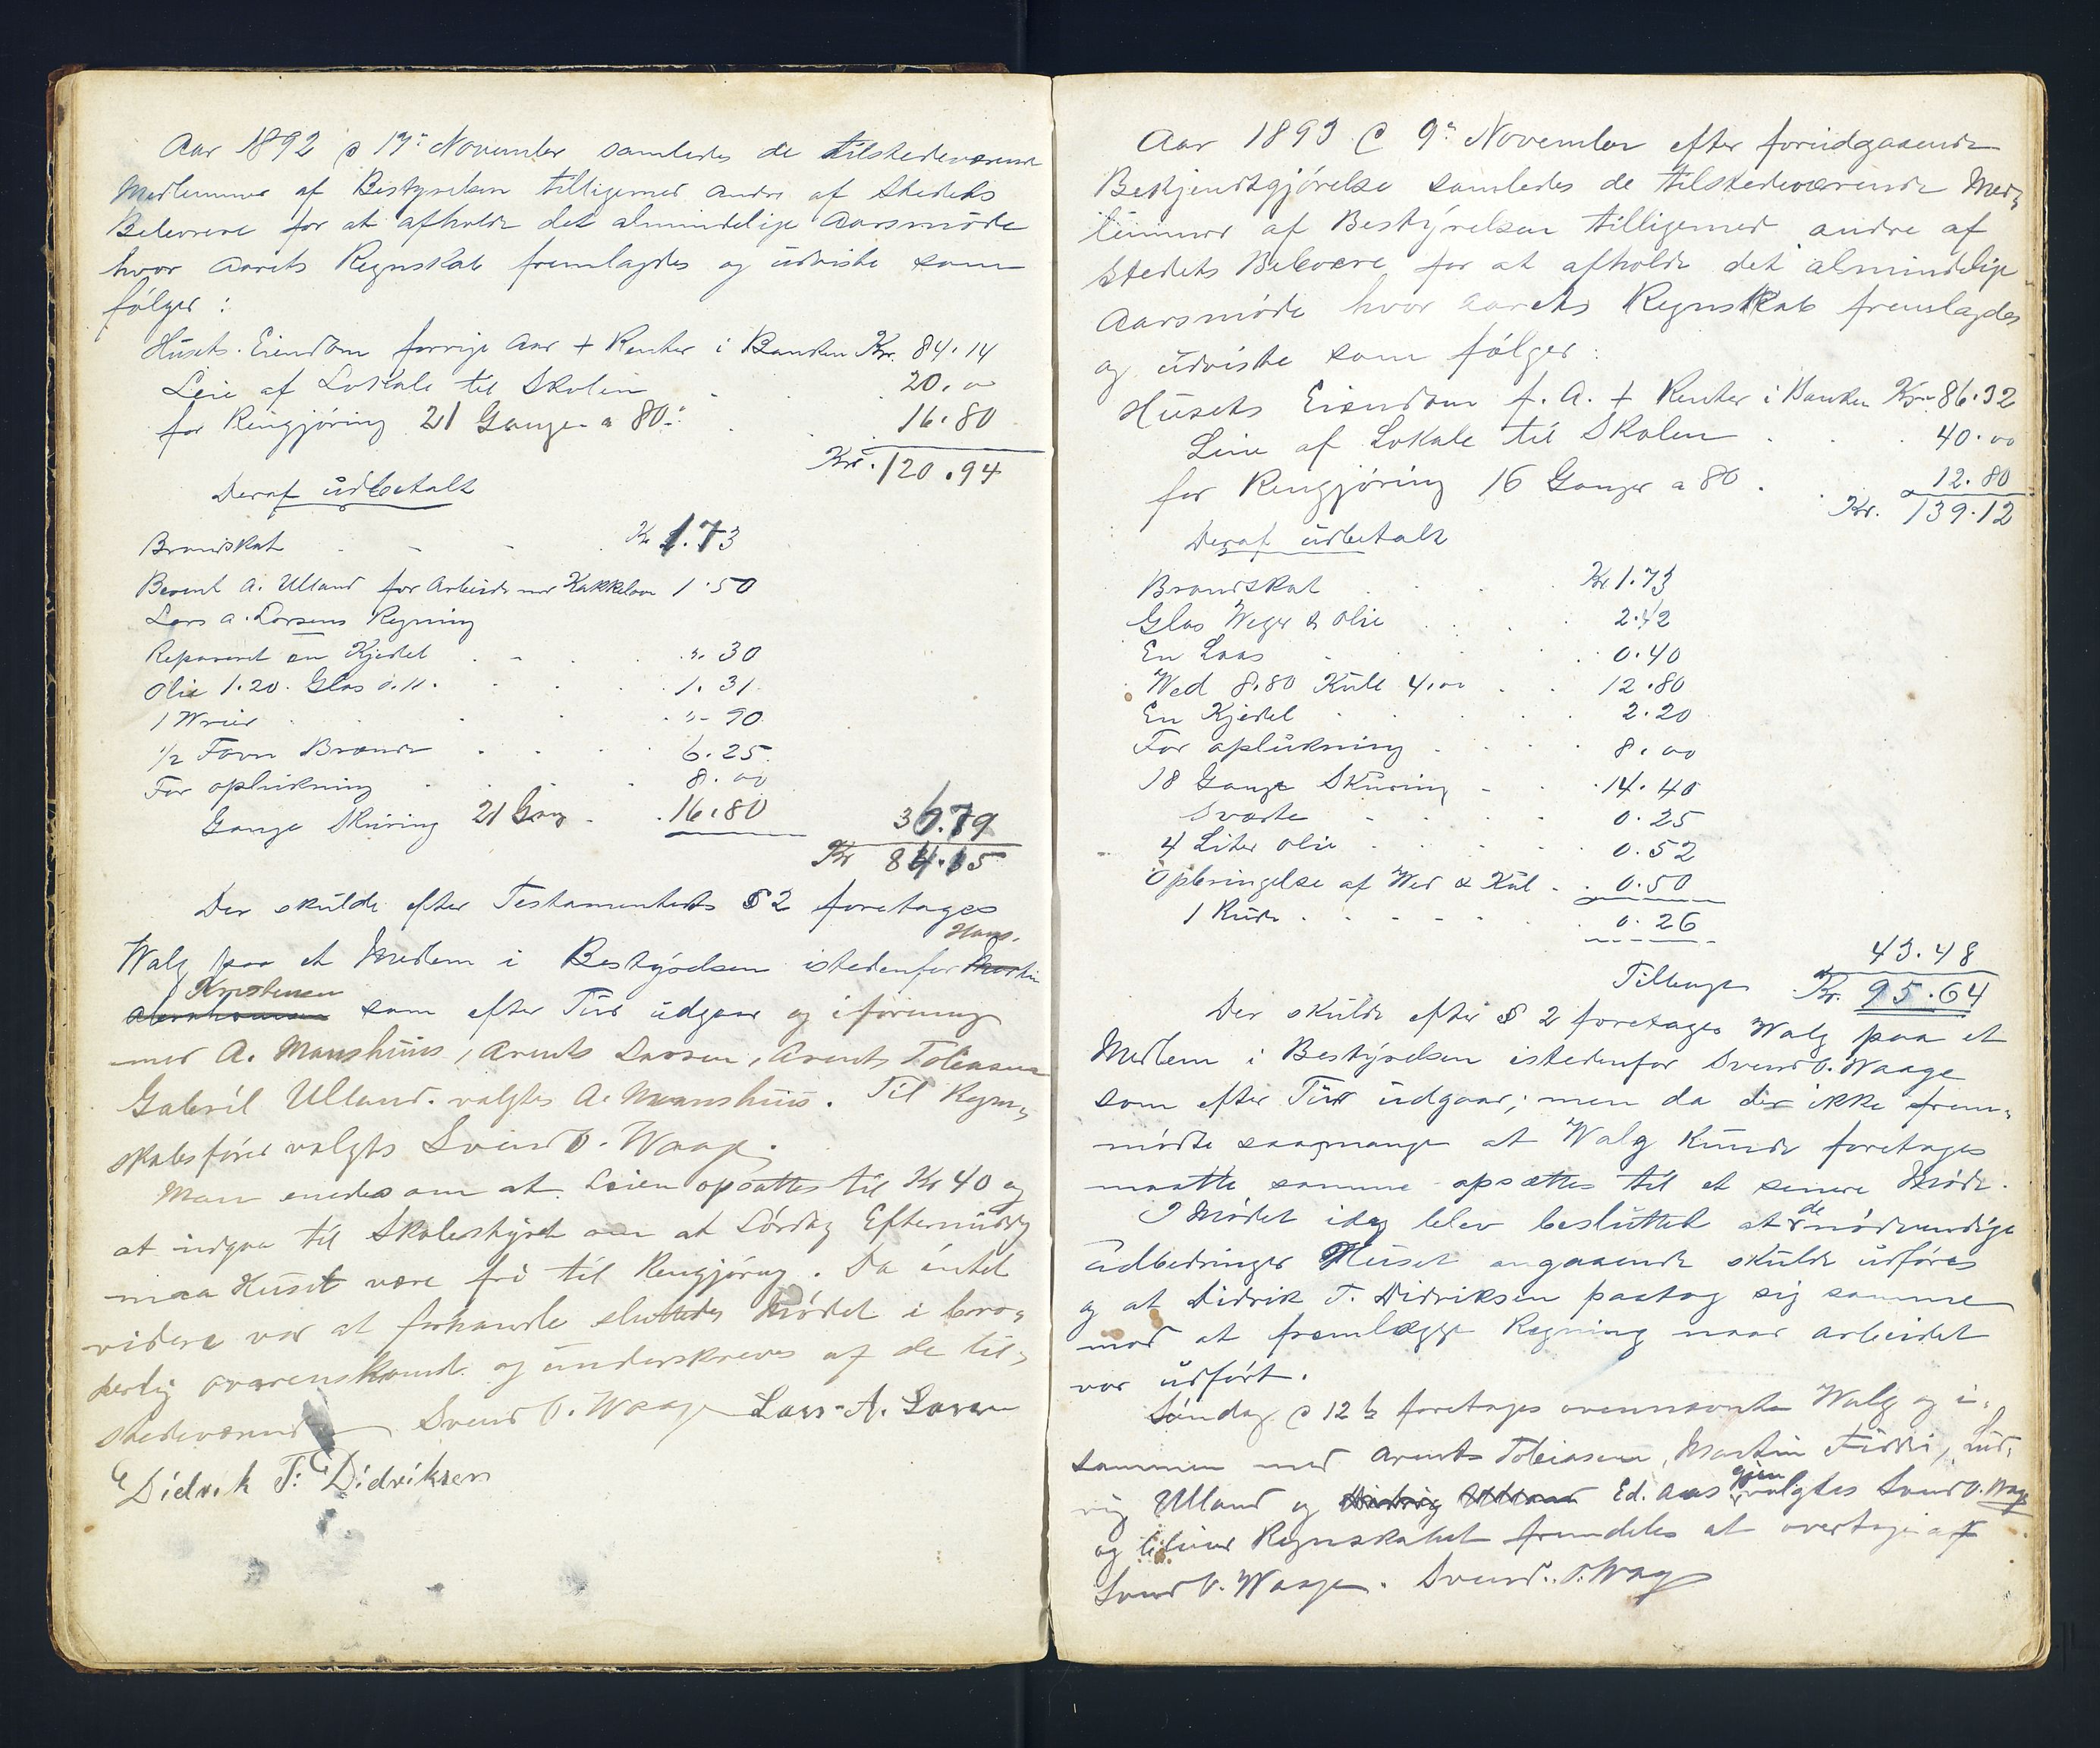 Aar 1892 d 17de November samledes de tilstedeværende
Medlemmer af Bestyrelsen tilligemed andre af Stedets
Beboere for at afholde det almindelige Aarsmøde
hvor Aarets Regnskab fremlagdes og udviste som
følger:
Husets Eiendom forrige Aar + Renter i Banken Kr. 84.14
Leie af Lokale til Skolen 20.00
for Rengjøring 21 Gange a 80 16.80
Kr. 120.94
Deraf udbetalt
Brandskat Kr 1.73
Berent A. Ulland for Arbeide med Kakkelovn 1.50
Lars A. Larsens Regning
Repareret en Kjedel " 30
Olie 1.20. Glas 0.11. 1.31
1 Wrier "- 90
1/2 Favn Brænde 6.25
For oplukning 8.00
Gange Skuring 21 Gang 16.80 36.79
Kr 84.15
Der skulde efter Testamentets § 2 foretages
Hans
Walg paa et Medlem i Bestyrelsen istedenfor Martin
Kristensen
Abrahamsen som efter Tur udgaar og iforening
med A. Manshuus, Arents Larsen, Arents Tobiasen
Gabriel Ulland. valgtes A. Manshuus. Til Regn-
skabsfører valgtes Svend O. Waage.
Man enedes om at Leien opsattes til Kr 40 og
at indgaa til Skolestyret om at Lørdag Eftermiddag
maa Huset være fri til Rengjøring. Da intet
videre var at forhandle sluttedes Mødet i bro-
derlig overenskomst og underskreves af de til-
stedeværende Svend O. Waage Lars A. Larsen
Didrik T. Didriksen
Aar 1893 d 9de November efter forudgaaende
Bekjendtgjørelse samledes de tilstedeværende Med-
lemmer af Bestyrelsen tilligemed andre af
Stedets Beboere for at afholde det almindelige
Aarsmøde hvor Aarets Regnskab fremlagdes
og udviste som følger:
Husets Eiendom f. A. + Renter i Banken Kr 86.32
Leie af Lokale til Skolen 40.00
for Rengjøring 16 Ganger a 80 12.80
Kr. 139.12
Deraf udbetalt
Brandskat Kr 1.73
Glas Weger & olie 2.42
En Laas 0.40
Wed 8.80 Kull 4.00 12.80
En Kjedel 2.20
For oplukning 8.00
18 Gange Skuring 14.40
Sværte 0.25
4 Liter olie 0.52
Opbringelse af Wed & Kul 0.50
1 Rude 0.26
43.48
Tilbage Kr. 95.64
Der skulde efter § 2 foretages Walg paa et
Medlem i Bestyrelsen istedenfor Svend O. Waage
som efter Tur udgaar; men da der ikke frem-
mødte saamange at Walg kunde foretages
maatte samme opsættes til et senere Møde.
I Mødet idag blev besluttet at de nødvendige
udbedringer Huset angaaende skulde udføres
og at Didrik T. Didriksen paatog sig samme
mod at fremlægge Regning naar arbeidet
var udført.
Søndag d 12te foretages ovennævnte Walg og i-
sammen med Arents Tobiasen, Martin Fidki, Lud-
vig Ulland og Ludvig Ulland Ed. Aas gjenvalgtes Svend O. Waage
og bliver Regnskabet fremdeles at overtage af
Svend O. Waage. Svend O. Waage